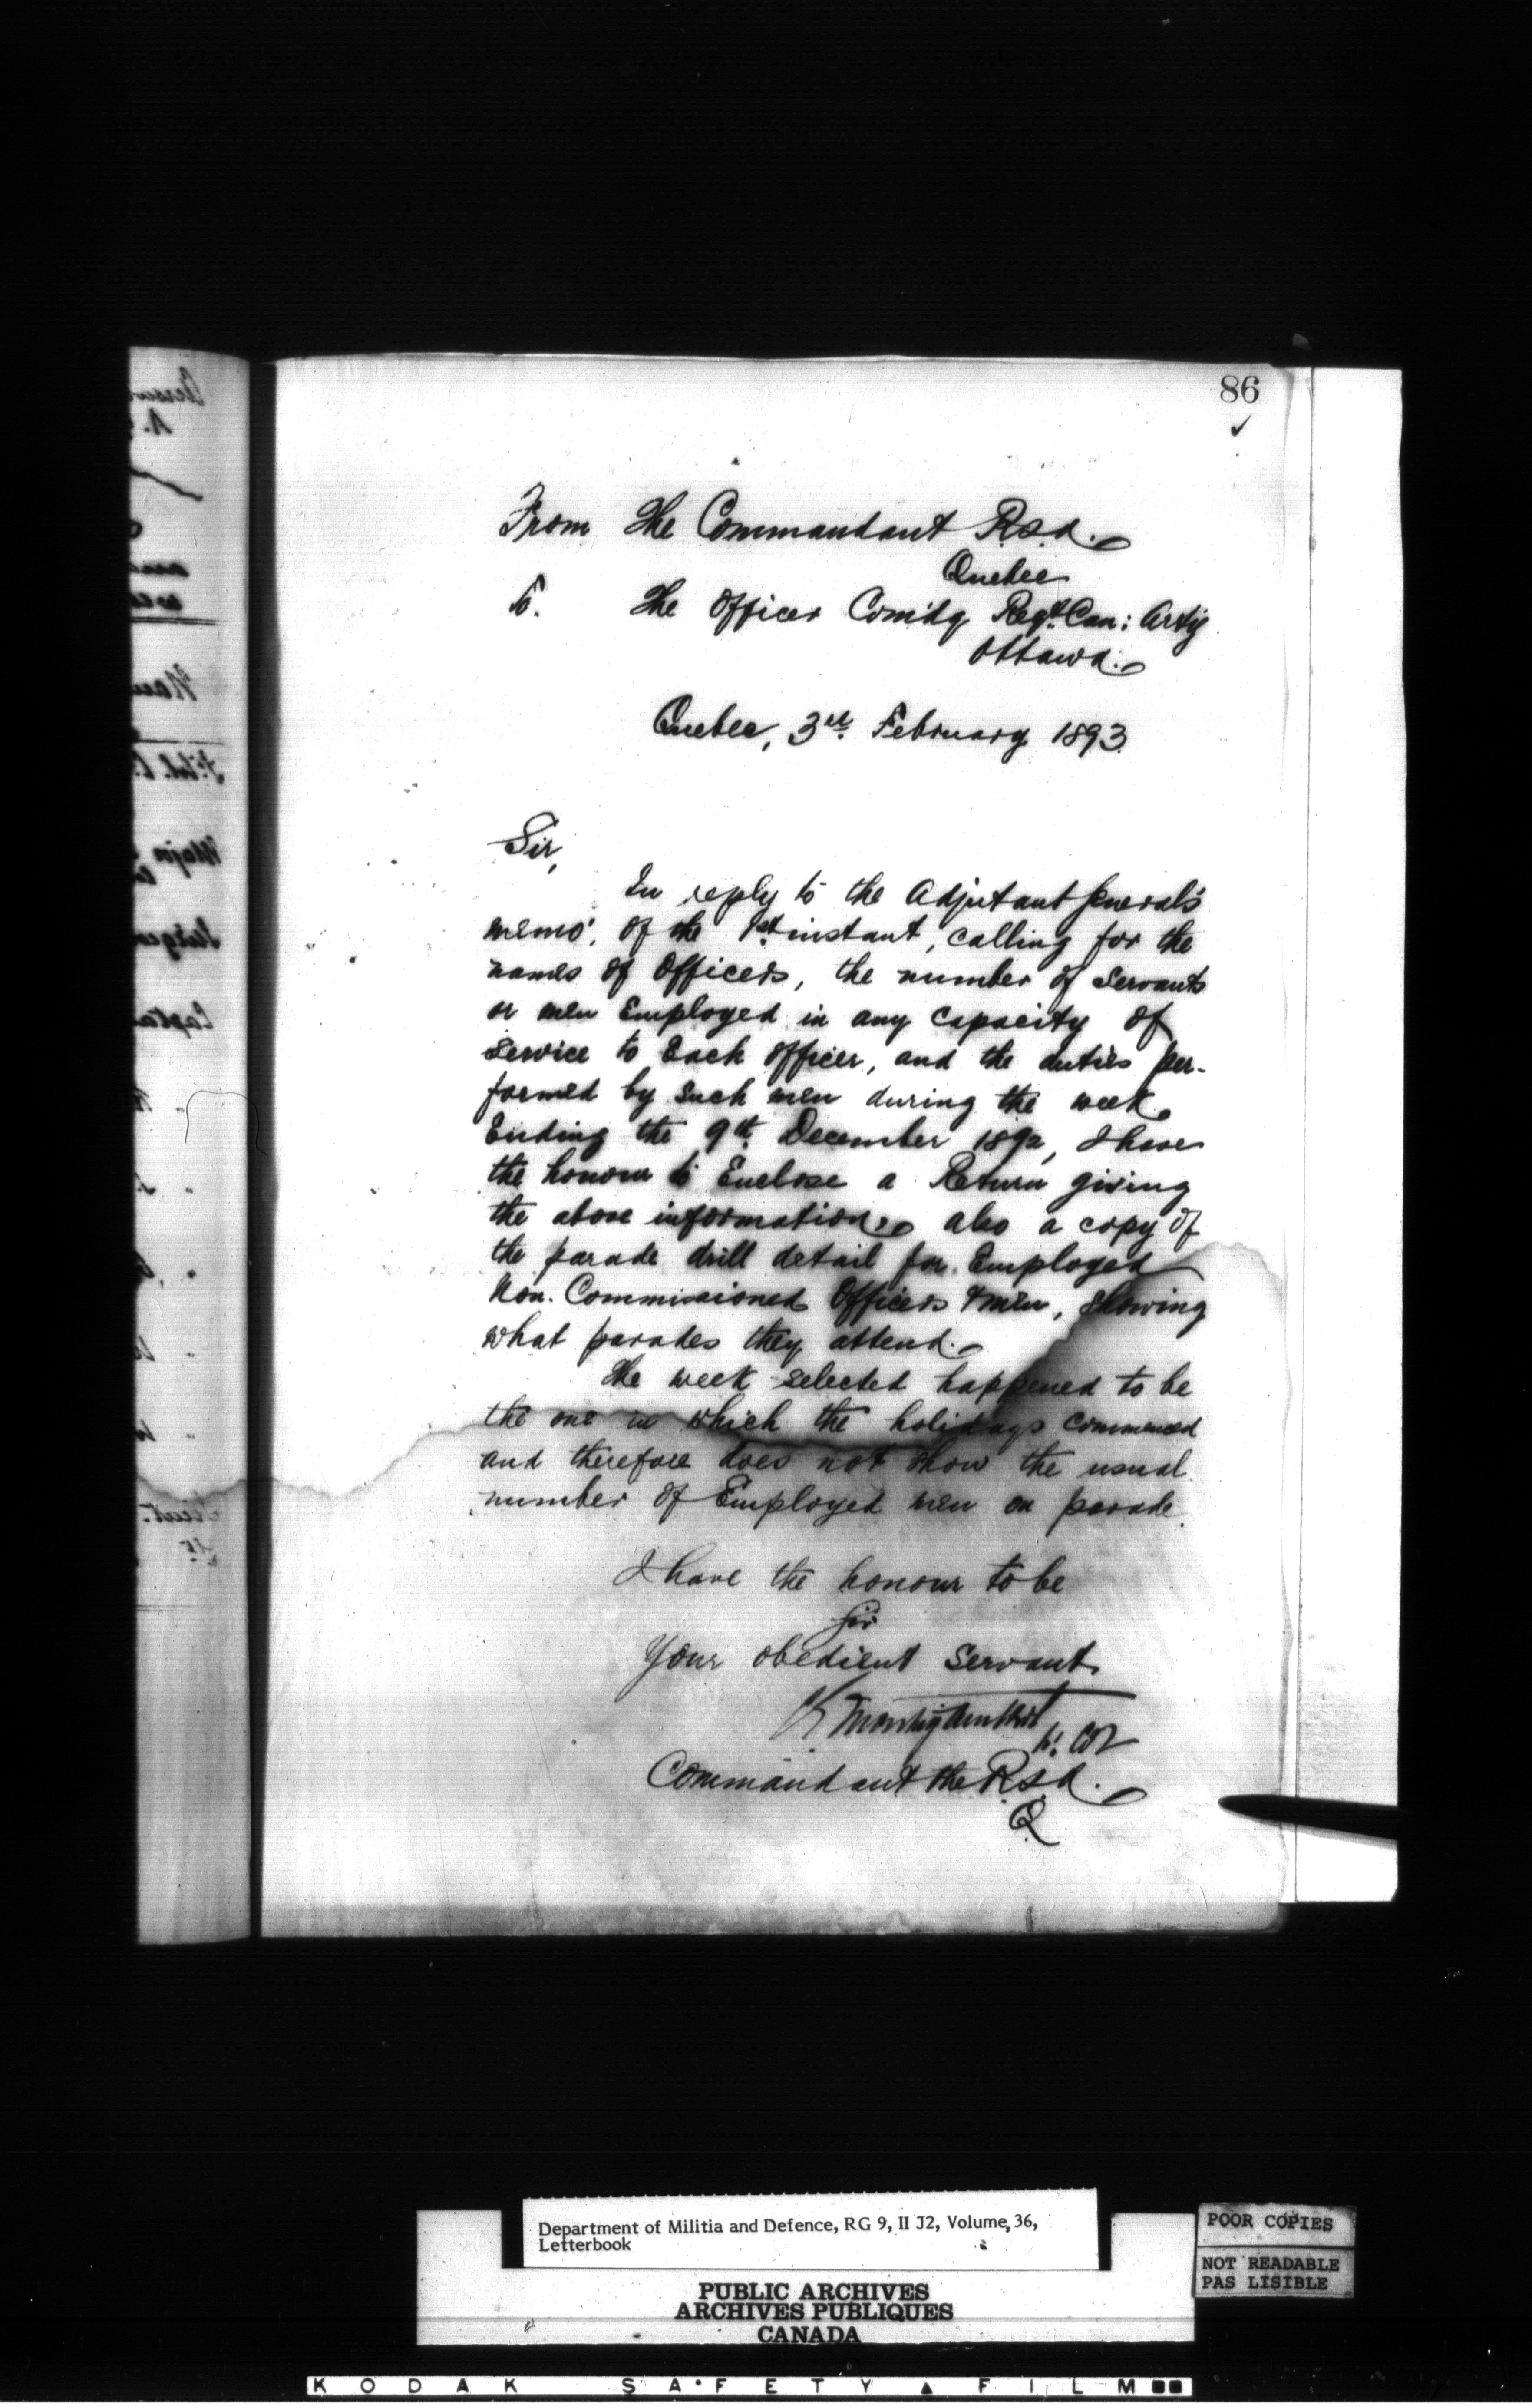 86
From The Commandant R.S.A.
Quebec
To. The Officer Comdg Regt. Can: Arty
Ottawa.
Quebec, 3rd. February 1893.
Sir,
In reply to the Adjutant General's
memo', of the 1st instant, calling for the
names of Officers, the number of Servants
or men Employed in any capacity of
service to Each Officer, and the duties per-
formed by such men during the week
Ending the 9th December 1892, I have
the honour to Enclose a Return giving
the above information, also a copy of
the parade drill detail for Employed
Non. Commissioned Officers & men, showing
what parades they attend.
The week selected happened to be
the one in which the holidays commenced
and therefore does not show the usual
number of Employed men on parade.
I have the honour to be
Sir
Your obedient Servant
Lt. Col
Commandant the R.S.A.
Q.
Department of Militia and Defence, RG 9, II J2, Volume, 36,
Letterbook
POOR COPIES
NOT READABLE
PAS LISIBLE
PUBLIC ARCHIVES
ARCHIVES PUBLIQUES
CANADA
KODAK SAFETY FILM